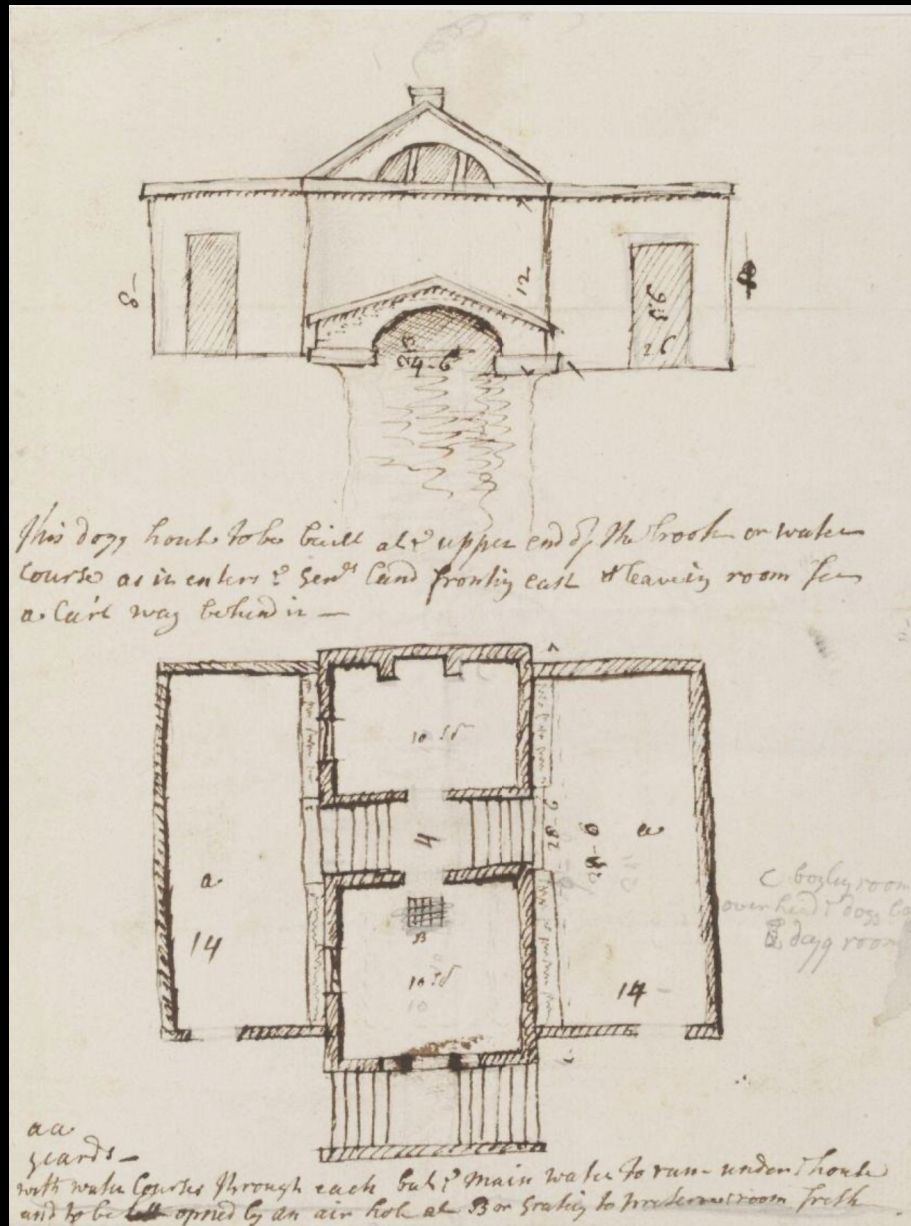 8-
12
2 3
4-6
9:8
2 6
This dogg house to be built at ye upper end of the brook or water
Course as it enters ye Genls Land fronting east & leaveing room for
a Cart way behind it —
10 sq
4
28-6
28-0
a
a
B
14
10 sq
10
14 -
C boyling room
over head ye dogs
dogg room
aa
yeards -
with water Courses through each but ye main water to run under ye house
and to be opned by an air hole at B or Grating to room fresh